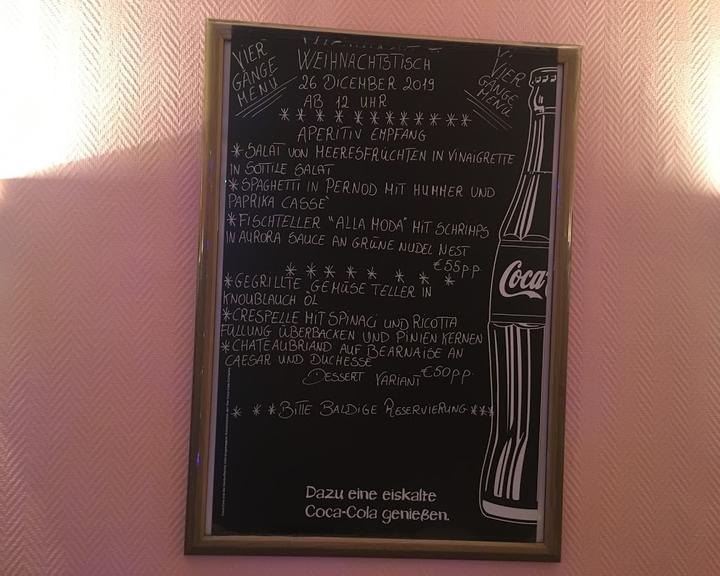 VIER
GÄNGE
MENÜ
VIER
GÄNGE
MENÜ
WEIHNACHTSTISCH
26 DICEMBER 2019
AB 12 UHR
* * * * * * * * * * *
APERITIV EMPFANG
* SALAT VON MEERESFRÜCHTEN IN VINAIGRETTE
IN SOTTILE SALAT
* SPAGHETTI IN PERNOD MIT HUMMER UND
PAPRIKA CASSE`
* FISCHTELLER "ALLA MODA" MIT SCHRIMPS
IN AURORA SAUCE AN GRÜNE NUDEL NEST
€55 p.p.
* * * * * * *
* GEGRILLTE GEMÜSE TELLER IN
KNOUBLAUCH ÖL
* CRESPELLE MIT SPINACI UND RICOTTA
FÜLLUNG ÜBERBACKEN UND PINIEN KERNEN
* CHATEAUBRIAND AUF BEARNAISE AN
CAESAR UND DUCHESSE
€50 p.p.
DESSERT VARIANT
* * * BITTE BALDIGE RESERVIERUNG ***
Coca
Dazu eine eiskalte
Coca-Cola genießen.